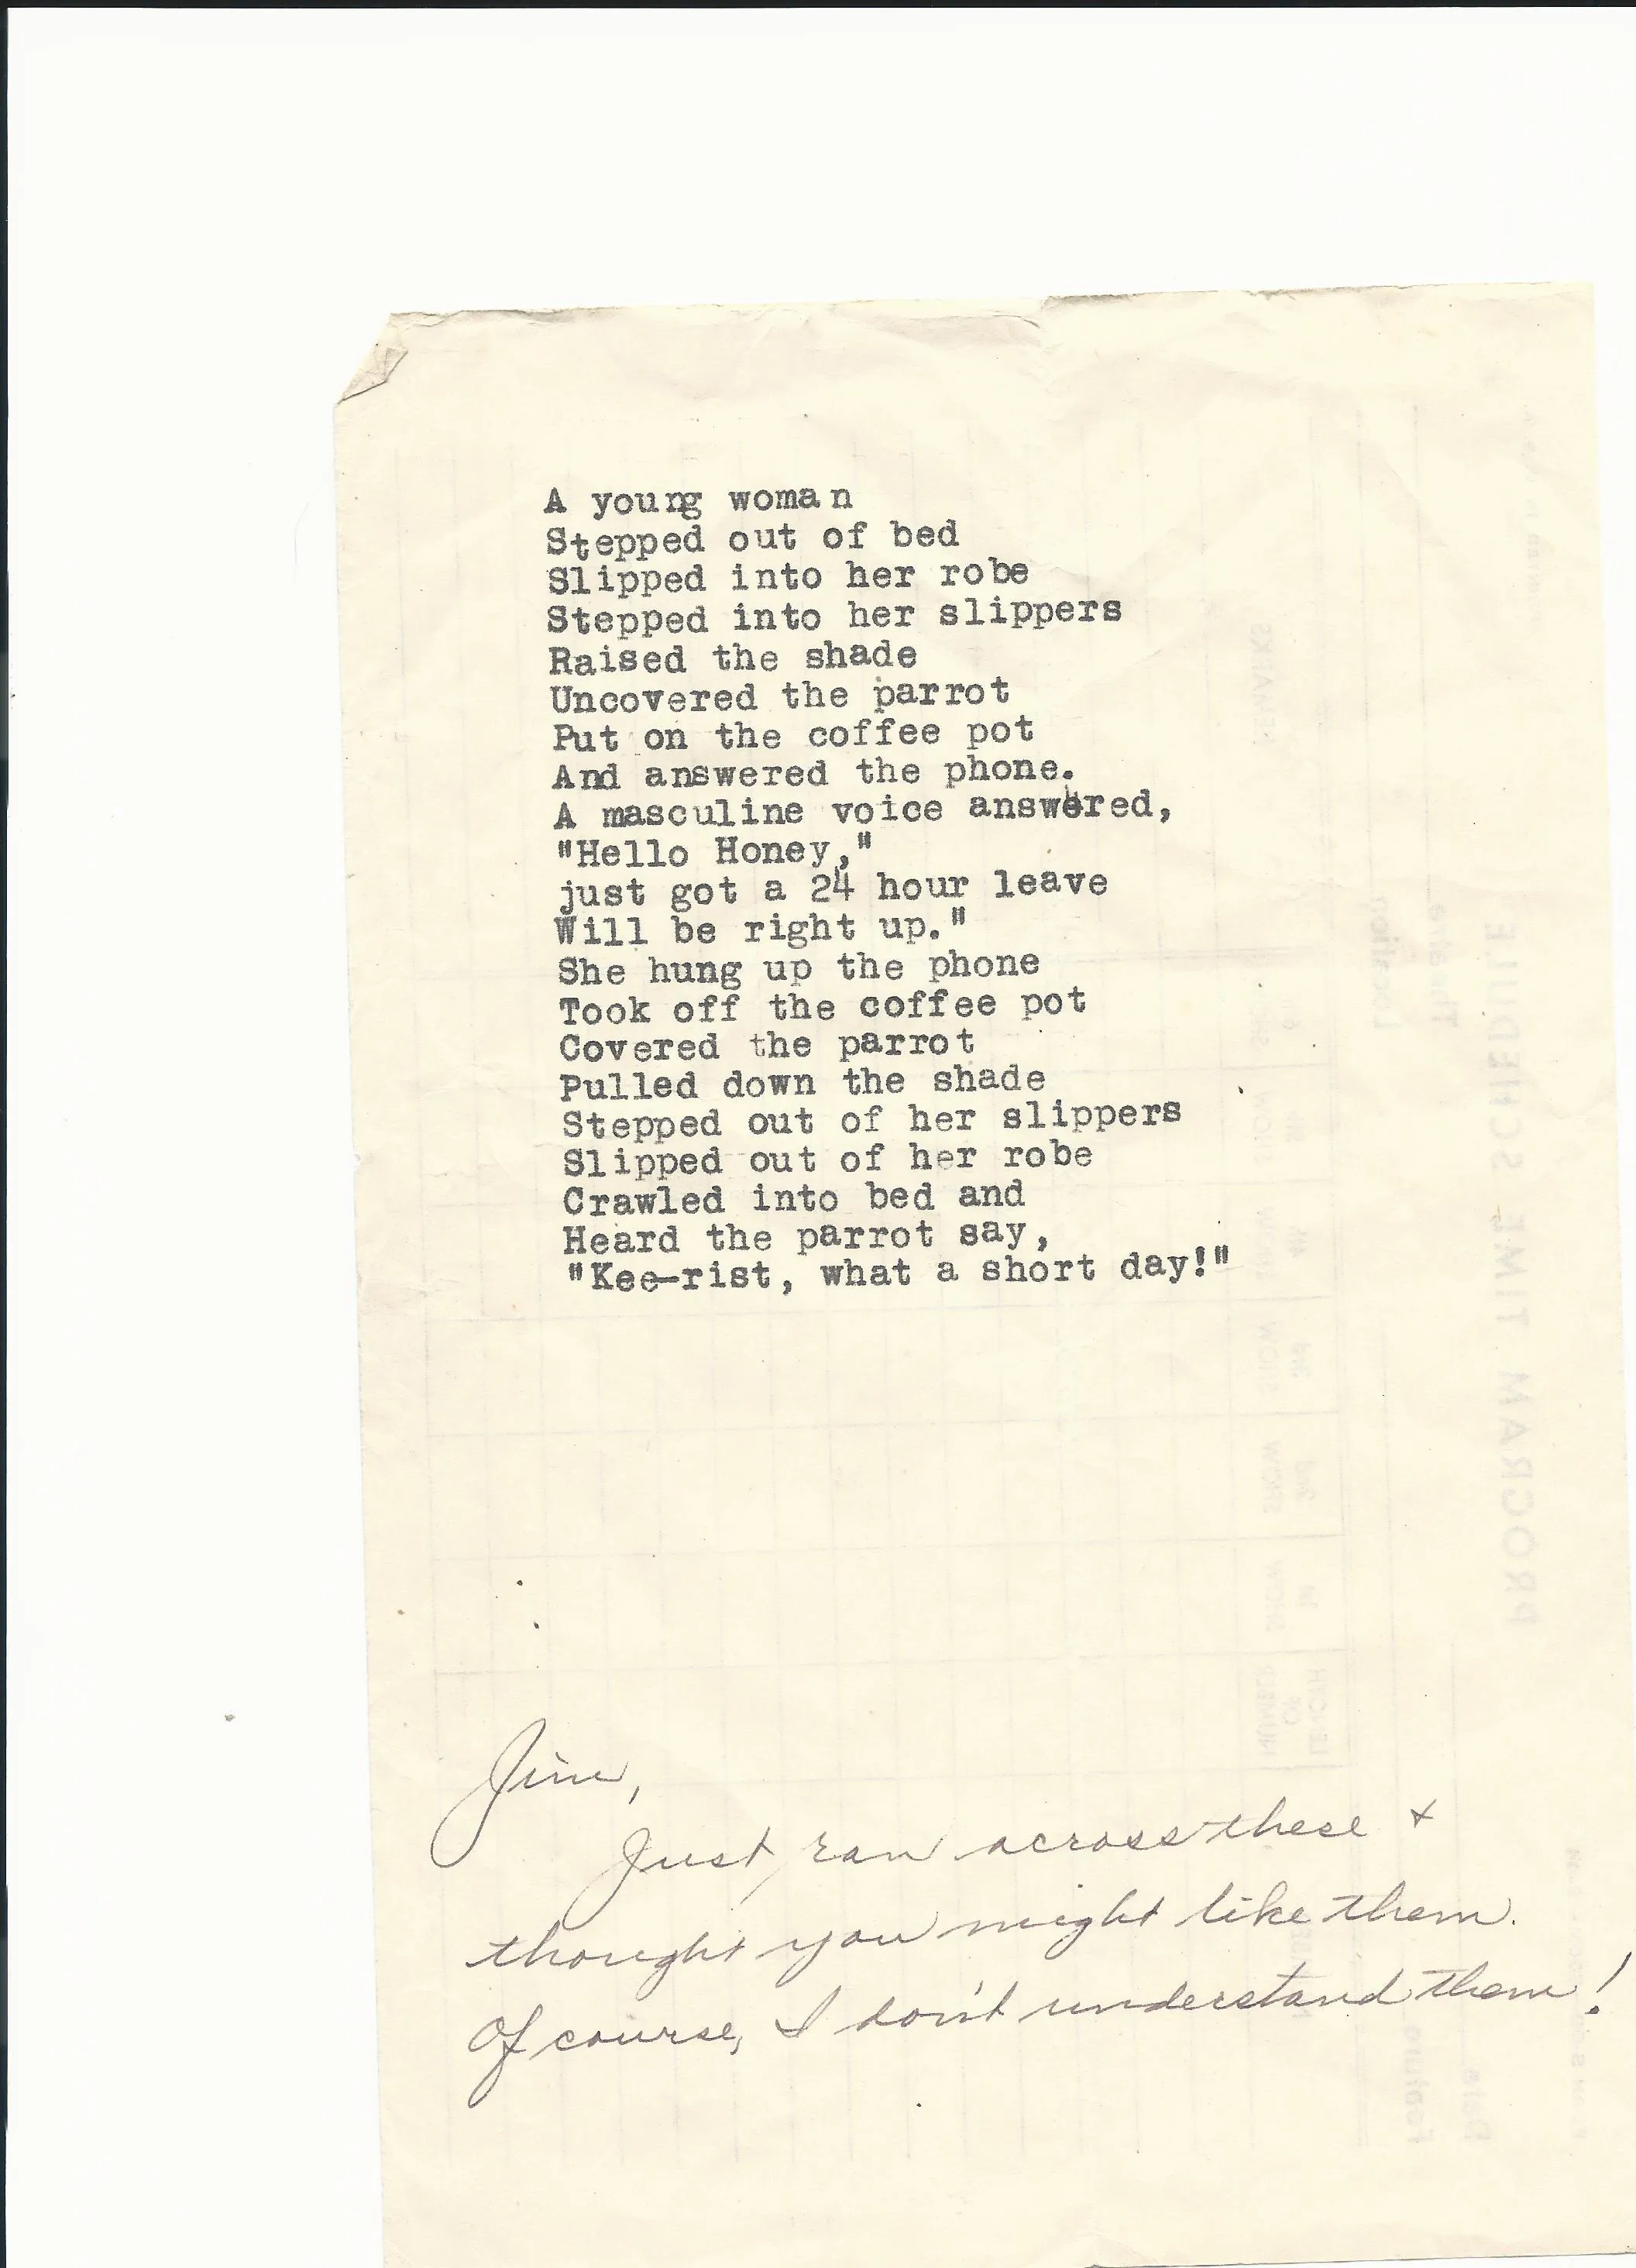 A young woman
Stepped out of bed
Slipped into her robe
Stepped into her slippers
Raised the shade
Uncovered the parrot
Put on the coffee pot
And answered the phone.
A masculine voice answered,
"Hello Honey,"
just got a 24 hour leave
Will be right up."
She hung up the phone
Took off the coffee pot
Covered the parrot
Pulled down the shade
Stepped out of her slippers
Slipped out of her robe
Crawled into bed and
Heard the parrot say,
"Kee-rist, what a short day!"
Jim,
Just ran across these +
thought you might like them.
Of course, I don't understand them!
PROGRAM TIME SCHEDULE
Theatre
Location
REMARKS
3rd
SHOW
2nd
SHOW
1st
SHOW
LENGTH
OF
NUMBER
Date
Feature